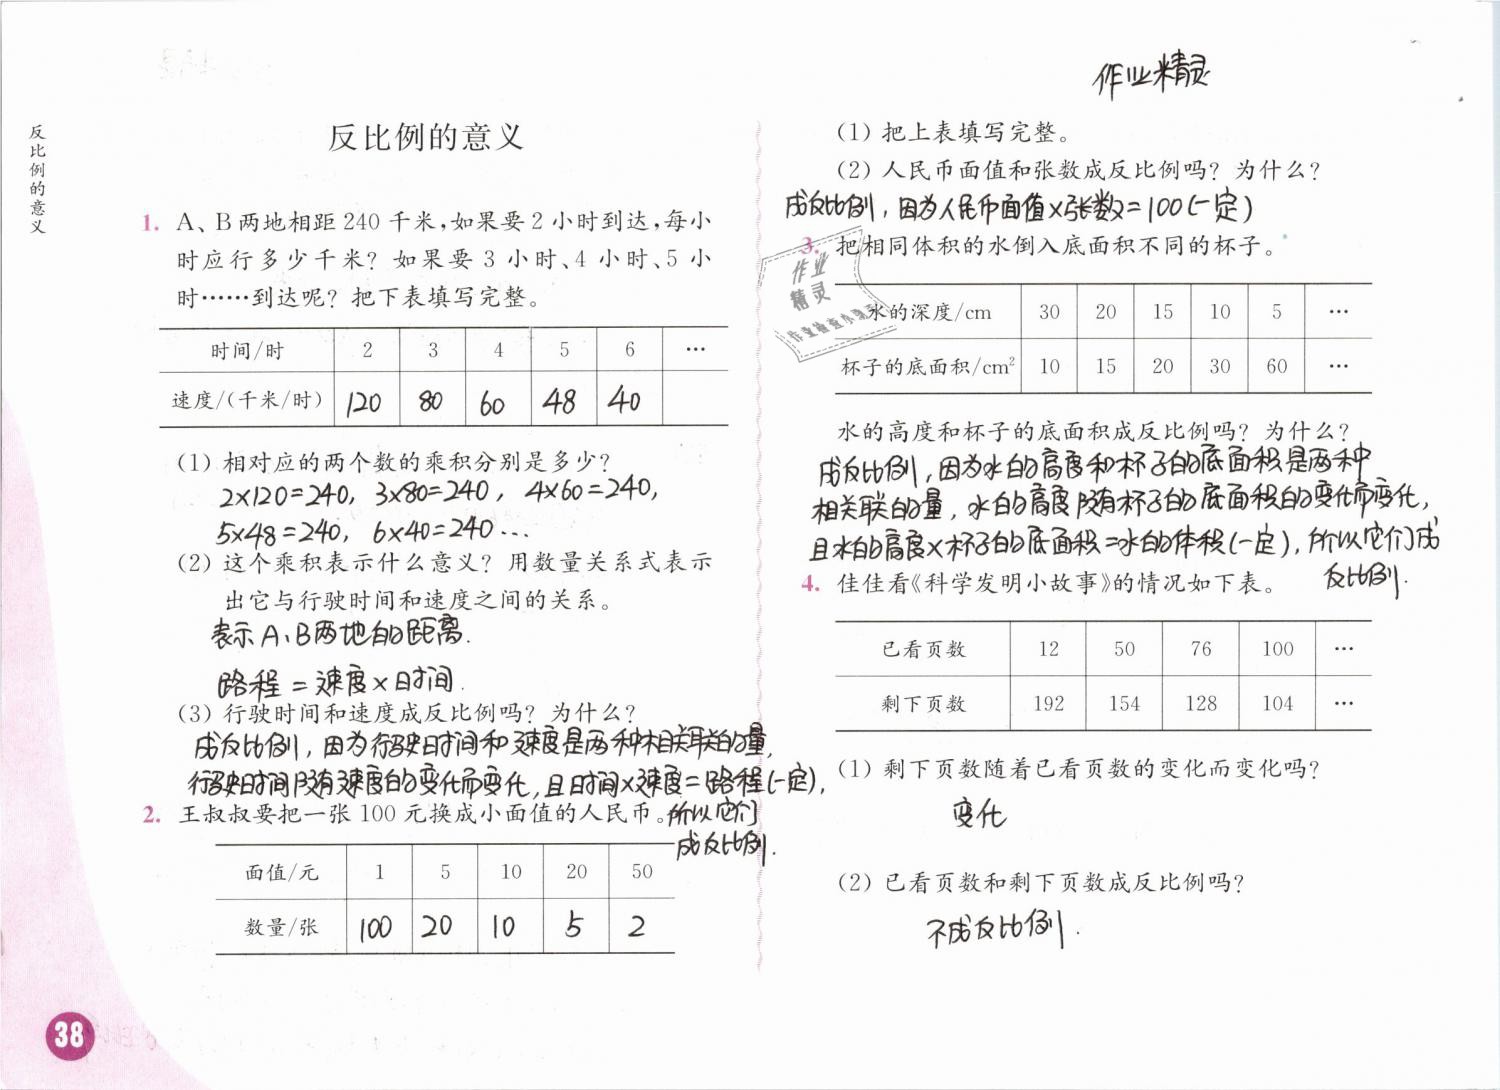 反比例的意义
反比例的意义
1. A、B两地相距240千米,如果要2小时到达,每小
时应行多少千米？如果要3小时、4小时、5小
时……到达呢？把下表填写完整。
时间/时 2 3 4 5 6 …
速度/(千米/时) 120 80 60 48 40
(1) 相对应的两个数的乘积分别是多少？
2×120=240, 3×80=240, 4×60=240,
5×48=240, 6×40=240…
(2) 这个乘积表示什么意义？用数量关系式表示
出它与行驶时间和速度之间的关系。
表示A、B两地的距离.
路程=速度×时间.
(3) 行驶时间和速度成反比例吗？为什么？
成反比例,因为行驶时间和速度是两种相关联的量,
行驶时间随着速度的变化而变化,且时间×速度=路程(一定),
所以它们
成反比例.
2. 王叔叔要把一张100元换成小面值的人民币。
面值/元 1 5 10 20 50
数量/张 100 20 10 5 2
38
作业精灵
(1) 把上表填写完整。
(2) 人民币面值和张数成反比例吗？为什么？
成反比例,因为人民币面值×张数=100(一定)
3. 把相同体积的水倒入底面积不同的杯子。
作业
精灵
水的深度/cm 30 20 15 10 5 …
杯子的底面积/cm² 10 15 20 30 60 …
水的高度和杯子的底面积成反比例吗？为什么？
成反比例,因为水的高度和杯子的底面积是两种
相关联的量,水的高度随着杯子的底面积的变化而变化,
且水的高度×杯子的底面积=水的体积(一定),所以它们成
反比例.
4. 佳佳看《科学发明小故事》的情况如下表。
已看页数 12 50 76 100 …
剩下页数 192 154 128 104 …
(1) 剩下页数随着已看页数的变化而变化吗？
变化
(2) 已看页数和剩下页数成反比例吗？
不成反比例.